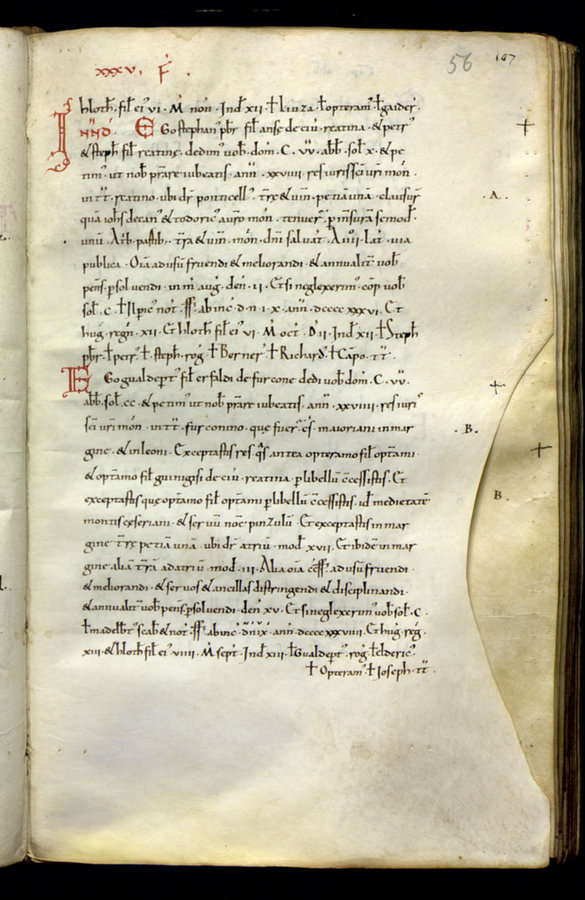 xxxv. F.
56 107
hloth̅. fil̅ ei' vi. M̅ noṅ. Ind̅ xii. ꝉ Liuza. ꝉ opteram̅. ꝉ gaider̅.
IN N̅ D̅. Ego stephan' pb̅r. fil̅ anse de ciui̅. reatina. & petr'
& steph̅ fil̅ reatine. dedim' uob̅ dom̅. C. vv̅. abb̅. sol̅. x. & pe
tim'. ut nob̅ p̅stare iubeatis. ann̅. xxviiii. res iuris sc̅i uri̅ mon̅.
in tt̅. reatino. ubi dr̅ ponticell'. tr̅e & uin̅. petia̅ una̅. clausur̅
qua̅ ioh̅s decan' & todoric' auro̅ mon̅. tenuer̅. p̅ insura̅ semod̅.
unu̅.
A.
publica. Oi̅a ad usu̅ fruendi & meliorandi. & annualit̅ uob̅
pens̅. p̅soluendi. in m̅ aug̅. den̅. ii. Et si neglexerim'. co̅p̅ uob̅
sol̅. c. ab inc̅. d. n. i. x. ann̅. dcccc xxxvi. Et
hug̅. regn̅. xii. Et hloth̅ fil̅ ei' vi. M̅ oct̅. D̅ ii. Ind̅ xii. ꝉ Steph̅
pb̅r. ꝉ petr'. ꝉ. steph̅. rog̅. ꝉ Berner'. ꝉ Richard'. ꝉ Ca̅po. tt̅.
Ego gualdep̅t' fil̅ erfaldi de furcone. dedi uob̅ dom̅. C. vv̅.
abb̅. sol̅. cc. & petim' ut nob̅ p̅stare iubeatis. ann̅. xxviiii. res iuri'
sc̅i uri̅ mon̅. in tt̅. furconino. que fuer̅ c̅s̅. maioriani in mar
B.
gine. & in leoni. Exceptastis res. q̅s antea opteramo fil̅ optami.
& optamo fil̅ guinigisi de ciui̅. reatina. p̅ libellu̅ c̅cessistis. Et
exceptastis que optamo fil̅ optami p̅ libellu̅ c̅cessistis. id̅ medietate̅
B.
montis ceseriani. & seruu̅ no̅e pinzulu̅. Et exceptastis in mar
gine tr̅e petia̅ una̅. ubi dr̅ atriu̅. mod̅. xvii. Et ibide̅ in mar
gine alia̅ tr̅a̅ ad atriu̅. mod̅. iii. Alia oi̅a c̅cess̅. ad usu̅ fruendi.
& meliorandi. & seruos & ancillas distringendi & disciplinandi.
& annualit̅ uob̅ pens̅. p̅soluendi. den̅ xv. Et si neglexerim' uob̅ sol̅. c.
ꝉ madelb̅t' scab̅. & not̅. ab inc̅. d̅ n̅ i̅ x̅. ann̅. dcccc xxxviiii. Et hug̅. reg̅.
xiii. & hloth̅ fil̅ ei' viiii. M̅ sept̅. Ind̅ xiii. ꝉ Gualdep̅t'. rog̅. ꝉ elderic'.
ꝉ Opteram'. ꝉ Ioseph. tt̅.